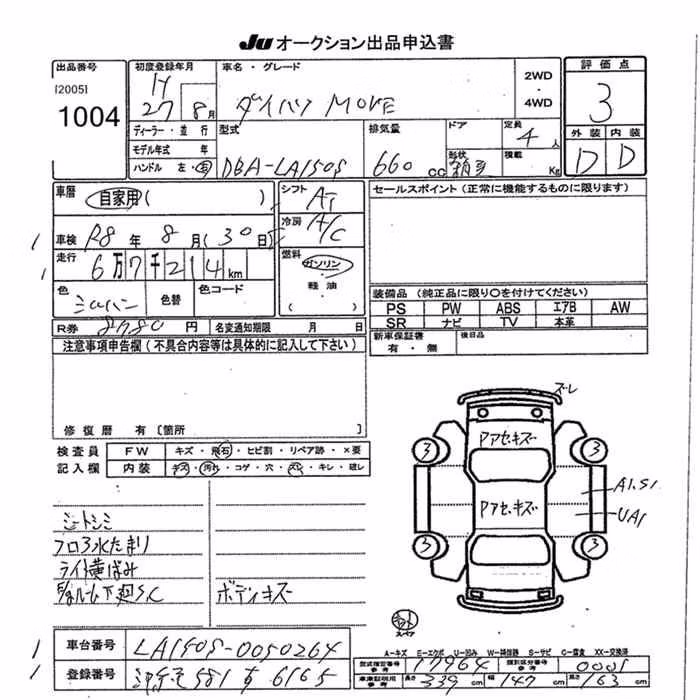 Ju オークション出品申込書
出品番号
[2005]
1004
初度登録年月
H
27 8月
車名・グレード
ダイハツ MOVE
2WD
・
4WD
評価点
3
外装 内装
D D
ディーラー・並行
モデル年式 年
ハンドル 左・右
型式
DBA-LA150S
排気量
660 cc
ドア
形状
箱型
定員
4人
積載
Kg
車歴
自家用( )
車検 R8年 8月(30日)
走行 6万7千214km
色
シルバー
色替
色コード
シフト AT
冷房 A/C
燃料
ガソリン
・
軽油
R券 8780円
名変通知期限 月 日
セールスポイント(正常に機能するものに限ります)
装備品(純正品に限り○を付けてください)
PS PW ABS エアB AW
SR ナビ TV 本革
新車保証書
有・無
後日品
注意事項申告欄(不具合内容等は具体的に記入して下さい)
修復歴 有〔箇所 〕
検査員
記入欄
FW キズ・飛石・ヒビ割・リペア跡・×要
内装 キズ・汚れ・コゲ・穴・スレ・キレ・破レ
シートシミ
フロア水たまり
ライト黄ばみ
下廻S.C
ボディキズ
ズレ
Pアセ、キズ
Pアセ、キズ
3
3
3
3
A1.S1
UA1
スペア
車台番号 LA150S-0050264
登録番号 581 す 6165
A-キズ E-エクボ U-凹み W-補修跡 S-サビ C-腐食 XX-交換済
型式指定番号
参考
17964
類別区分番号
参考
0001
車庫証明用
参考
長さ 339cm 幅 147cm 高さ 163cm